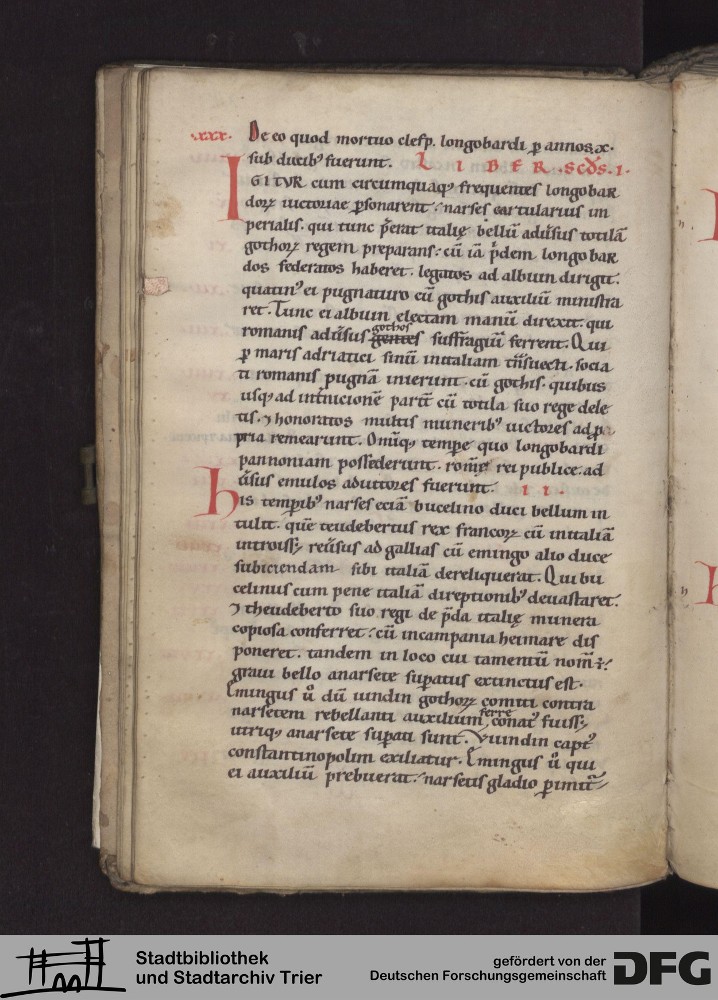 .xxx. De eo quod mortuo clefp. longobardi ꝑ annos .x.
sub ducib; fuerunt. LIBER .SCD̅S. I.
IGITVR cum circumquaq; frequentes longobar
doꝝ uictoriae ꝑsonarent. narses cartularius im
perialis. qui tunc p̅erat italię bellū adũsus totilā
gothoꝝ regem preparans. cū iā p̅dem longobar
dos federatos haberet. legatos ad albuin dirigit.
quatin; ei pugnaturo cū gothis auxiliū ministra
ret. Tunc ei albuin electam manū direxit. qui
romanis adũsus gentes gothos suffragiū ferrent. Qui
ꝑ maris adriatici sinū initaliam tn̅suecti. socia
ti romanis pugnā inierunt. cū gothis. quibus
usq; ad int̅nicionē parit̅ cū totila suo rege dele
tis. ⁊ honoratos multis munerib; uictores ad ꝓ
pria remearunt. Omiq; tempe quo longobardi
pannoniam possederunt. romꝫę rei publice. ad
ũsus emulos adiutores fuerunt. II.
His tempib; narses eciā bucelino duci bellum in
tulit. quē teudebertus rex francoꝝ cū initaliā
introiss; reũsus ad gallias cū emingo alio duce
subiciendam sibi italiā dereliquerat. Qui bu
celinus cum pene italiā direptionib; deuastaret.
⁊ theudeberto suo regi de p̅da italię munera
copiosa conferret. cū incampania heimare dis
poneret. tandem in loco cui tamentū nom̅ ÷.
graui bello anarsete supatus extinctus est.
Emingus ů dū uindin gothoꝝ comiti contra
narsetem rebellanti auxilium ferre conat; fuiss;
utriq; anarsete supati sunt. Vuindin capt;
constantinopolim exiliatur. Emingus ů qui
ei auxiliū prebuerat. narsetis gladio ꝑimit̅
Stadtbibliothek
und Stadtarchiv Trier
gefördert von der
Deutschen Forschungsgemeinschaft DFG